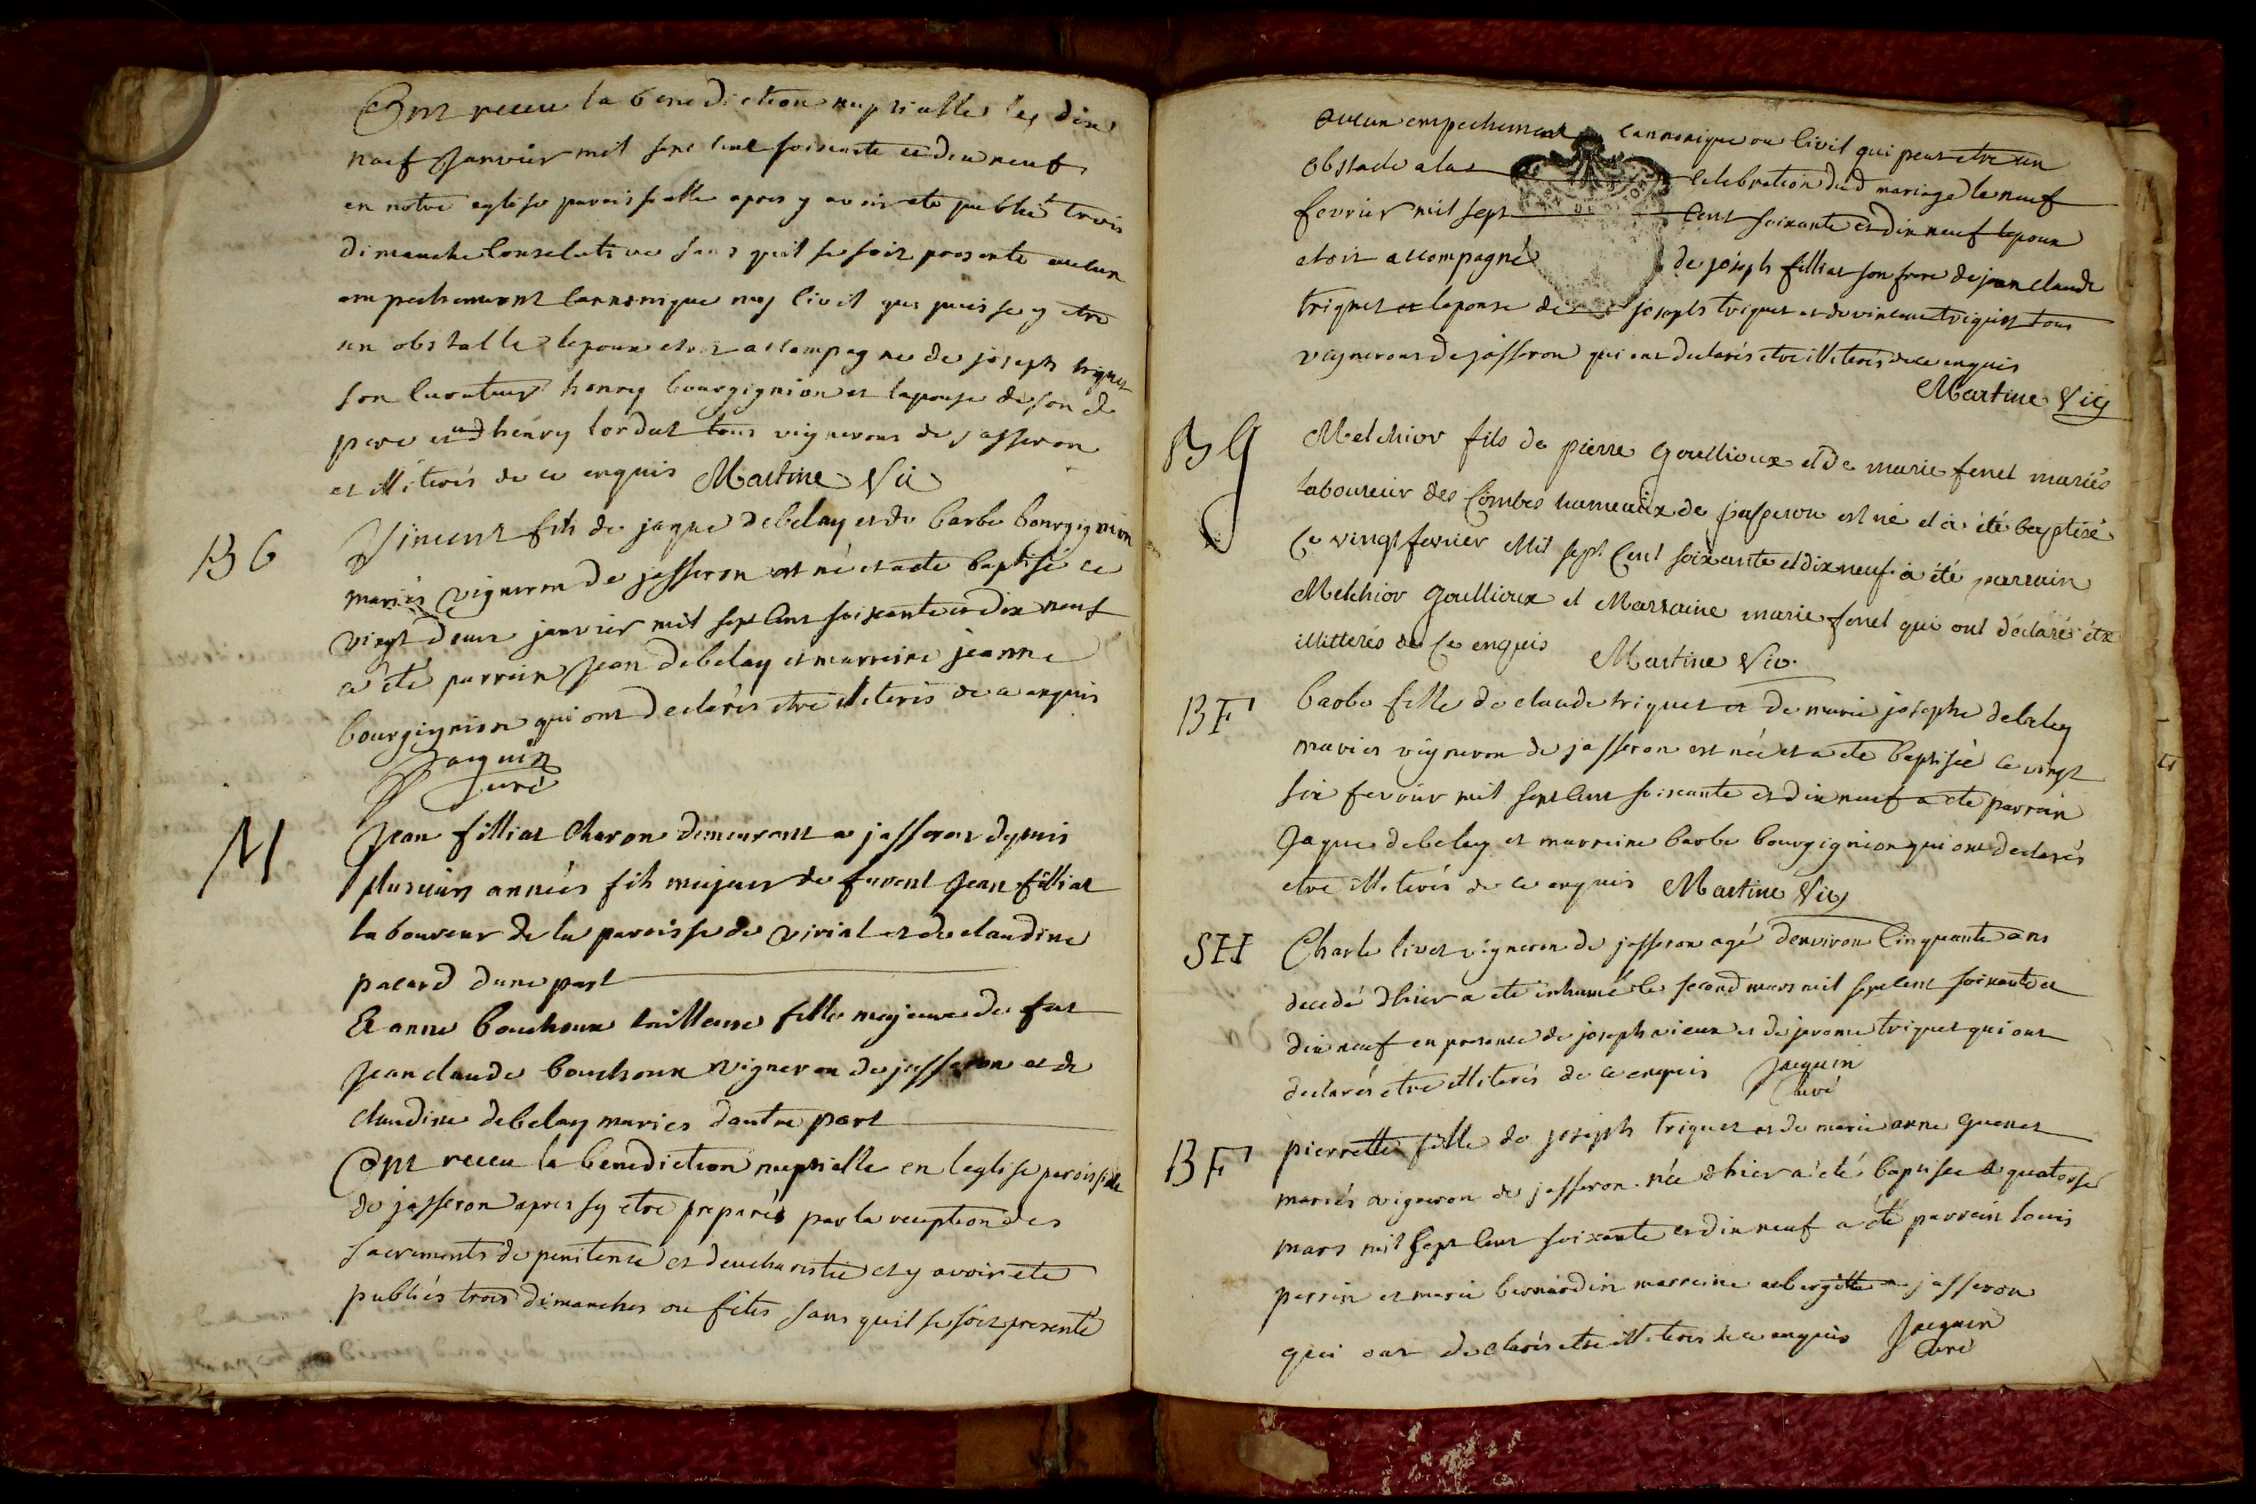 Ont receu la benediction nuptialle le dix
neuf Janvier mil sept cent soixante et dix neuf
en notre eglise paroissialle apres y avoir ete publié trois
dimanche consecutive sans quil se soit presenté aucun
empechement cannonique ny civil qui puisse y etre
un obstacle lepoux etoit accompagné de joseph triquet
son curateur henry bourgignion et lepouse de son d
pere et d henry cordat tous vignerons de jasseron
et illiterés de ce enquis Martine Vic
BG
Vincent fils de jaque debelay et de barbe bourgignion
mariés vigneron de jasseron est né et a ete baptisé ce
vingt deux janvier mil sept cent soixante et dix neuf
a été parrain Jean debelay et marraine jeanne
bourgignion qui ont declarés etre illiterés de ce enquis
Jacquin
curé
M
Jean filliat charon demeurant a jasseron depuis
plusieurs années fils majeur de furent Jean filliat
laboureur de la paroisse de viriat et de claudine
pacard dune part
Et anne bouchoux tailleuse fille majeure de feu
Jean claude bouchoux vigneron de jasseron et de
claudine debelay mariés dautre part
Ont receu la benediction nuptialle en leglise paroissialle
de jasseron apres sy etre preparés par la reception des
sacrements de penitense et deucharistie et y avoir ete
publiés trois dimanches ou fêtes sans quil se soit presenté
aucun empechement cannonique ou civil qui peut etre un
obstacle a la celebration dud mariage le neuf
fevrier mil sept cent soixante et dix neuf lepoux
etoit accompagné de joseph filliat son frere de jean claude
triquet et lepouse de joseph triquet et de vincent triquet tous
vignerons de jasseron qui ont declarés etre illiterés de ce enquis
Martine Vic
BG
Melchior fils de pierre Goullioux et de marie fenet mariés
laboureur des Combes hameaux de jasseron est né et à été baptisé
Ce vingt fevrier Mil sept Cent soixante et dix neuf à été parrain
Melchior Goullioux et Marraine marie fenet qui ont déclaré être
illitterés de Ce enquis Martine Vic.
BF
barbe fille de claude triquet et de marie josephe debelay
mariés vigneron de jasseron est née et a ete baptisée ce vingt
six fevrier mil sept cent soixante et dix neuf a ete parrain
Jaque debelay et marraine barbe bourgignion qui ont declarés
etre illiterés de ce enquis Martine Vic
SH
Charle livet vigneron de jasseron agé denviron Cinquante ans
decedé dhier a ete inhumé le second mars mil sept cent soixante et
dix neuf en presence de joseph vieux et de jerome triquet qui ont
declarés etre illiterés de ce enquis Jacquin
curé
BF
pierrette fille de joseph triquet et de marie anne guenet
mariés vigneron de jasseron née dhier a été baptisée le quatorse
mars mil sept cent soixante et dix neuf a été parrain louis
perrin et marie bernardin marraine jasseron
qui ont declarés etre illiterés de ce enquis Jacquin
curé